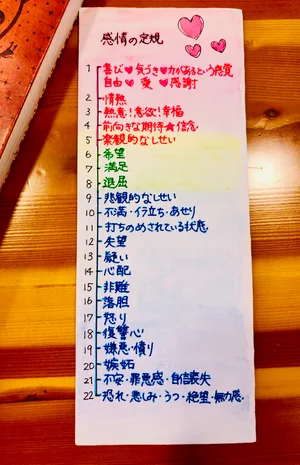 感情の定規
1 喜び♥気づき♥力があるという感覚
自由♥愛♥感謝
2 情熱
3 熱意!意欲!幸福
4 前向きな期待★信念
5 楽観的なしせい
6 希望
7 満足
8 退屈
9 悲観的なしせい
10 不満・イラ立ち・あせり
11 打ちのめされている状態
12 失望
13 疑い
14 心配
15 非難
16 落胆
17 怒り
18 復讐心
19 嫌悪・憤り
20 嫉妬
21 不安・罪悪感・自信喪失
22 恐れ・悲しみ・うつ・絶望・無力感・